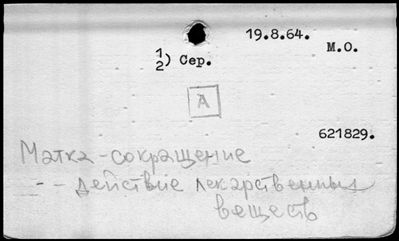 19.8.64.
М.О.
1/2) Сер.
А
621829.
Матка-сокращение
-- действие лекарственных
веществ